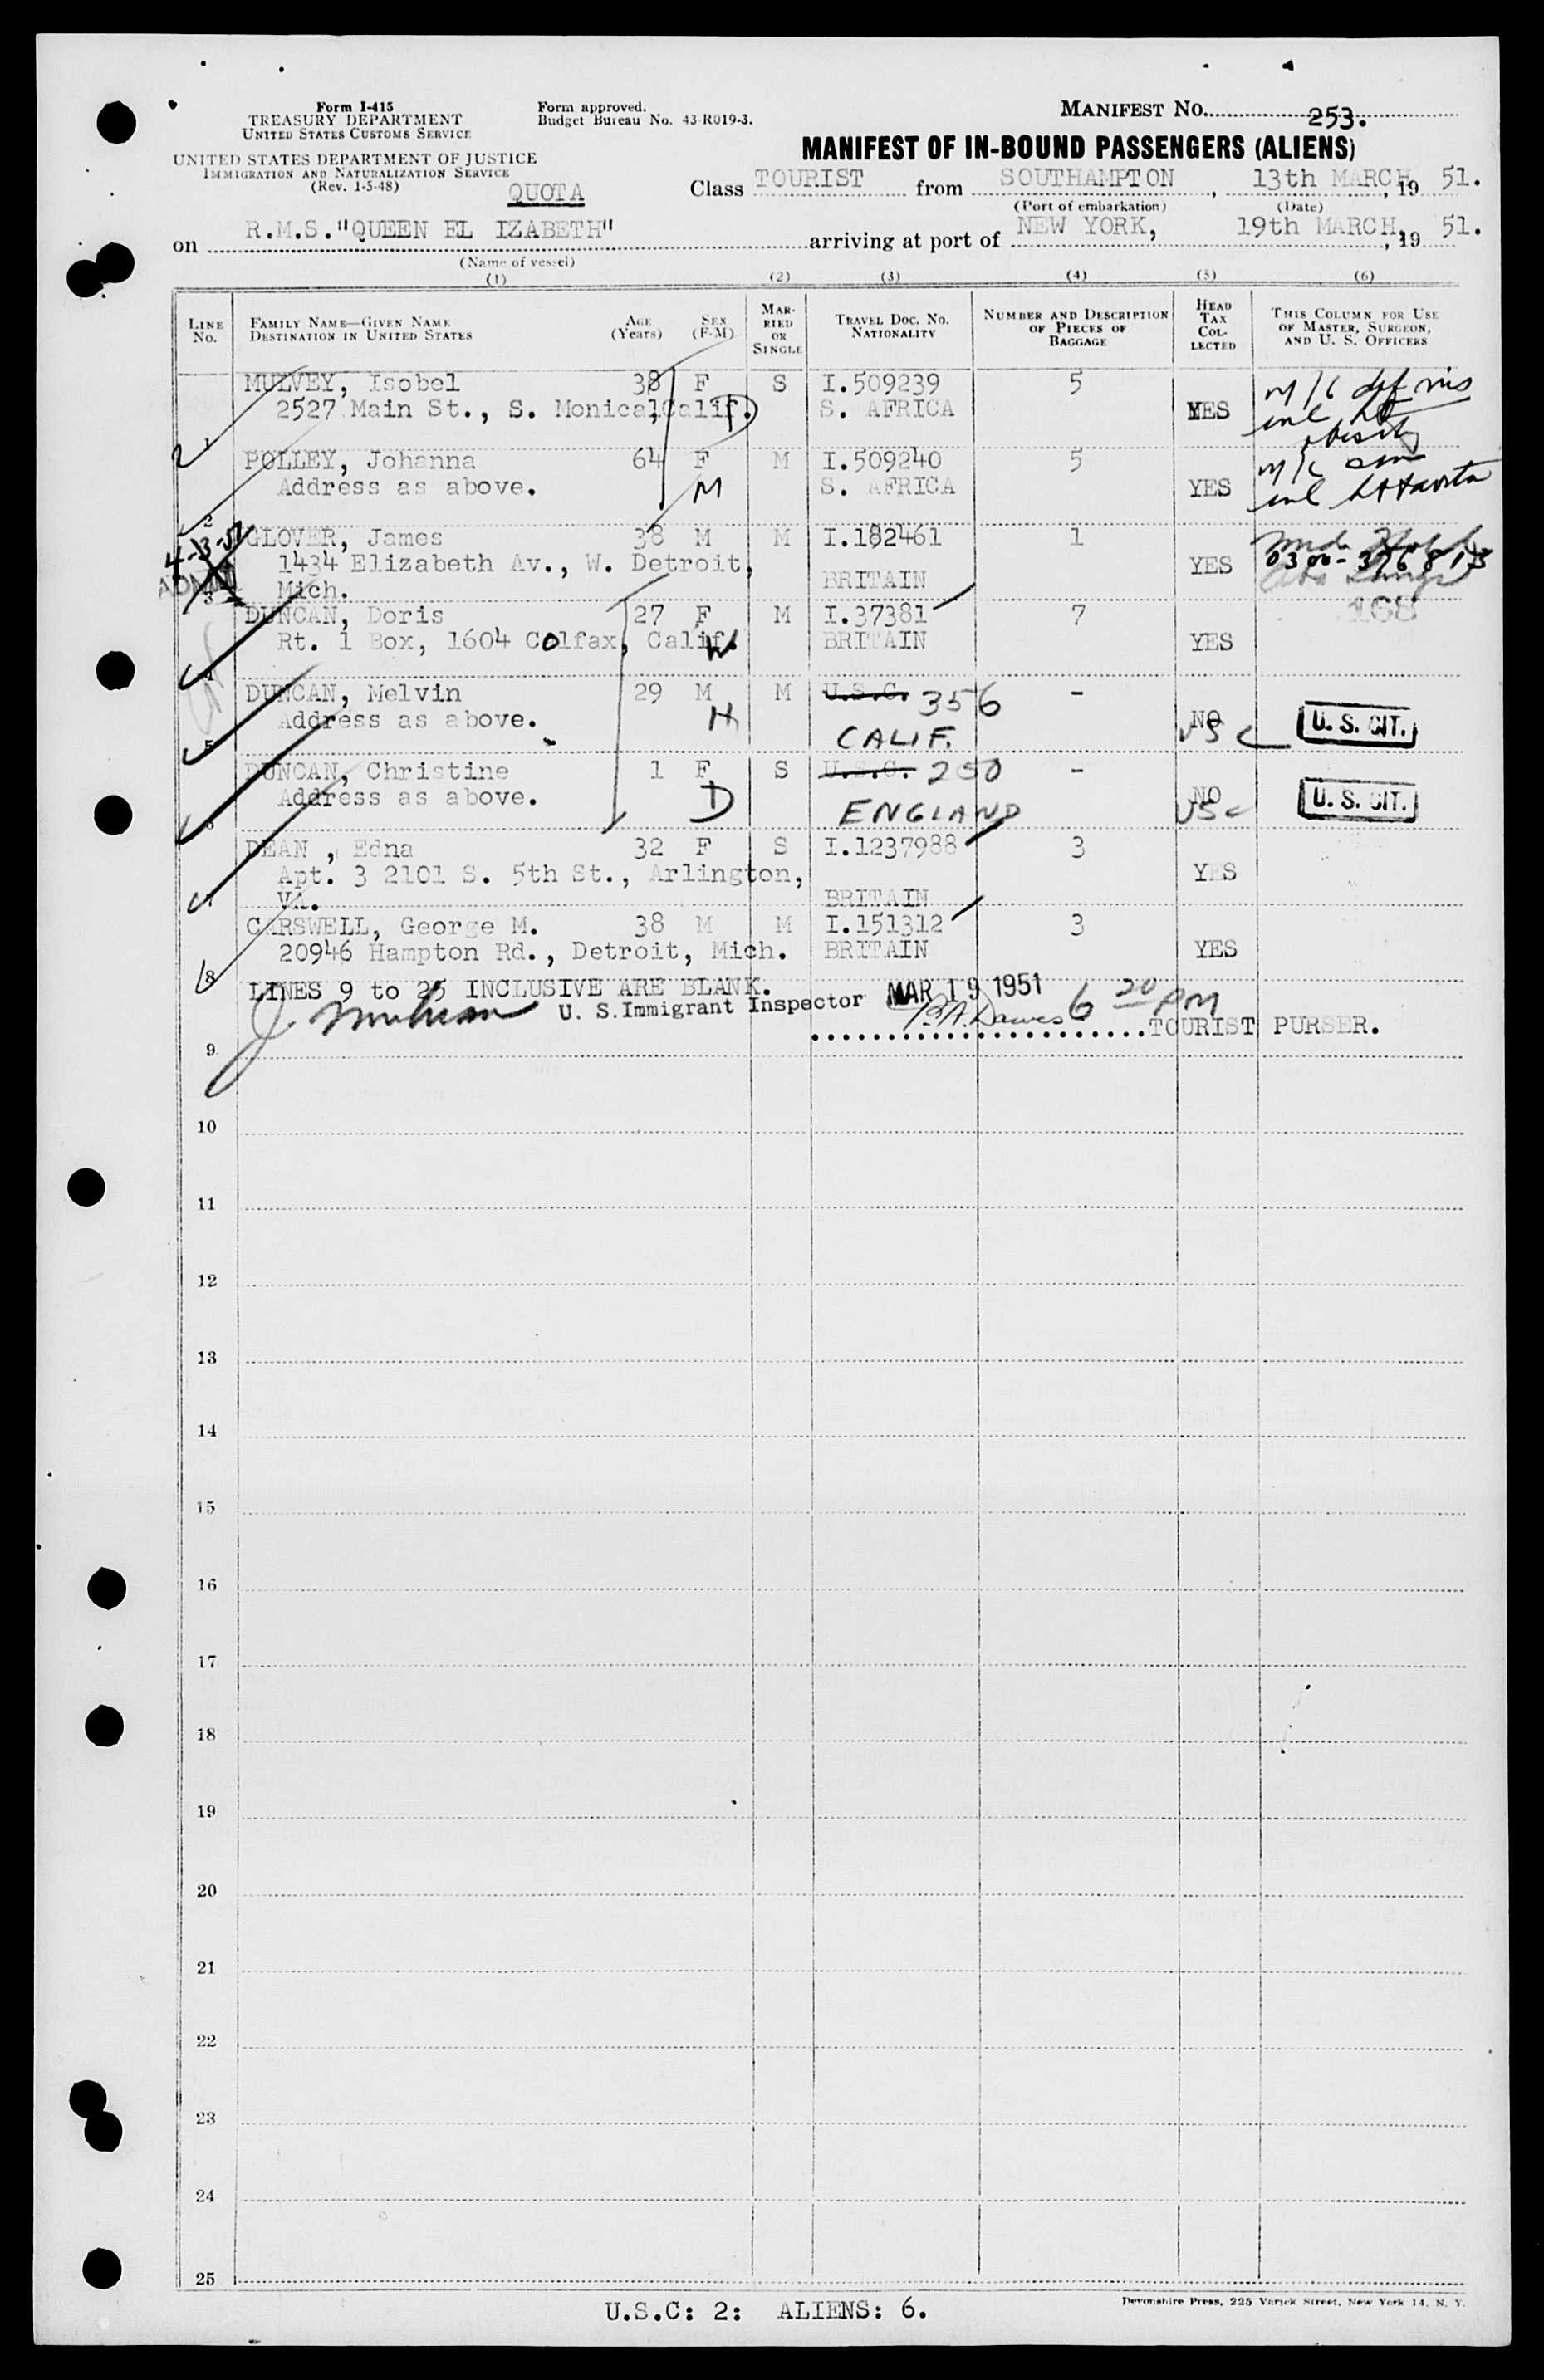 Form I-415
TREASURY DEPARTMENT
UNITED STATES CUSTOMS SERVICE
UNITED STATES DEPARTMENT OF JUSTICE
IMMIGRATION AND NATURALIZATION SERVICE
(Rev. 1-5-48)
QUOTA
Form approved.
Budget Bureau No. 43-R019-3.
MANIFEST No. 253.
MANIFEST OF IN-BOUND PASSENGERS (ALIENS)
Class TOURIST from SOUTHAMPTON, 13th MARCH, 19 51.
(Port of embarkation) (Date)
on R.M.S."QUEEN EL IZABETH" arriving at port of NEW YORK, 19th MARCH, 19 51.
(Name of vessel)
(1) (2) (3) (4) (5) (6)
LINE No. FAMILY NAME—GIVEN NAME DESTINATION IN UNITED STATES AGE (Years) SEX (F-M) MARRIED OR SINGLE TRAVEL DOC. NO. NATIONALITY NUMBER AND DESCRIPTION OF PIECES OF BAGGAGE HEAD TAX COLLECTED THIS COLUMN FOR USE OF MASTER, SURGEON, AND U. S. OFFICERS
MULVEY, Isobel 38 F S I.509239 5 M/C def vis
2527 Main St., S. Monica,Calif. D S. AFRICA YES
1 obesity
POLLEY, Johanna 64 F M I.509240 5 M/C
Address as above. M S. AFRICA YES
2
GLOVER, James 38 M M I.182461 1
4-13-51
1434 Elizabeth Av., W. Detroit, YES 0300-376813
ADMIT
Mich. BRITAIN
3
DUNCAN, Doris 27 F M I.37381 7 168
Rt. 1 Box, 1604 Colfax, Calif. W BRITAIN YES
4
DUNCAN, Melvin 29 M M U.S.C. 356 -
Address as above. H CALIF. NO USC U. S. CIT.
5
DUNCAN, Christine 1 F S U.S.C. 250 -
Address as above. D ENGLAND NO USC U. S. CIT.
6
DEAN , Edna 32 F S I.1237988 3
Apt. 3 2101 S. 5th St., Arlington, YES
7 VA. BRITAIN
CARSWELL, George M. 38 M M I.151312 3
20946 Hampton Rd., Detroit, Mich. BRITAIN YES
8
LINES 9 to 25 INCLUSIVE ARE BLANK.
U. S. Immigrant Inspector MAR 19 1951 6 20 PM
TOURIST PURSER.
9
10
11
12
13
14
15
16
17
18
19
20
21
22
23
24
25
U.S.C: 2: ALIENS: 6.
Devonshire Press, 225 Varick Street, New York 14, N. Y.